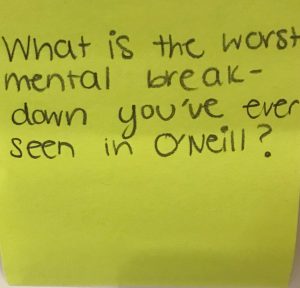 What is the worst
mental break-
down you've ever
seen in O'Neill?